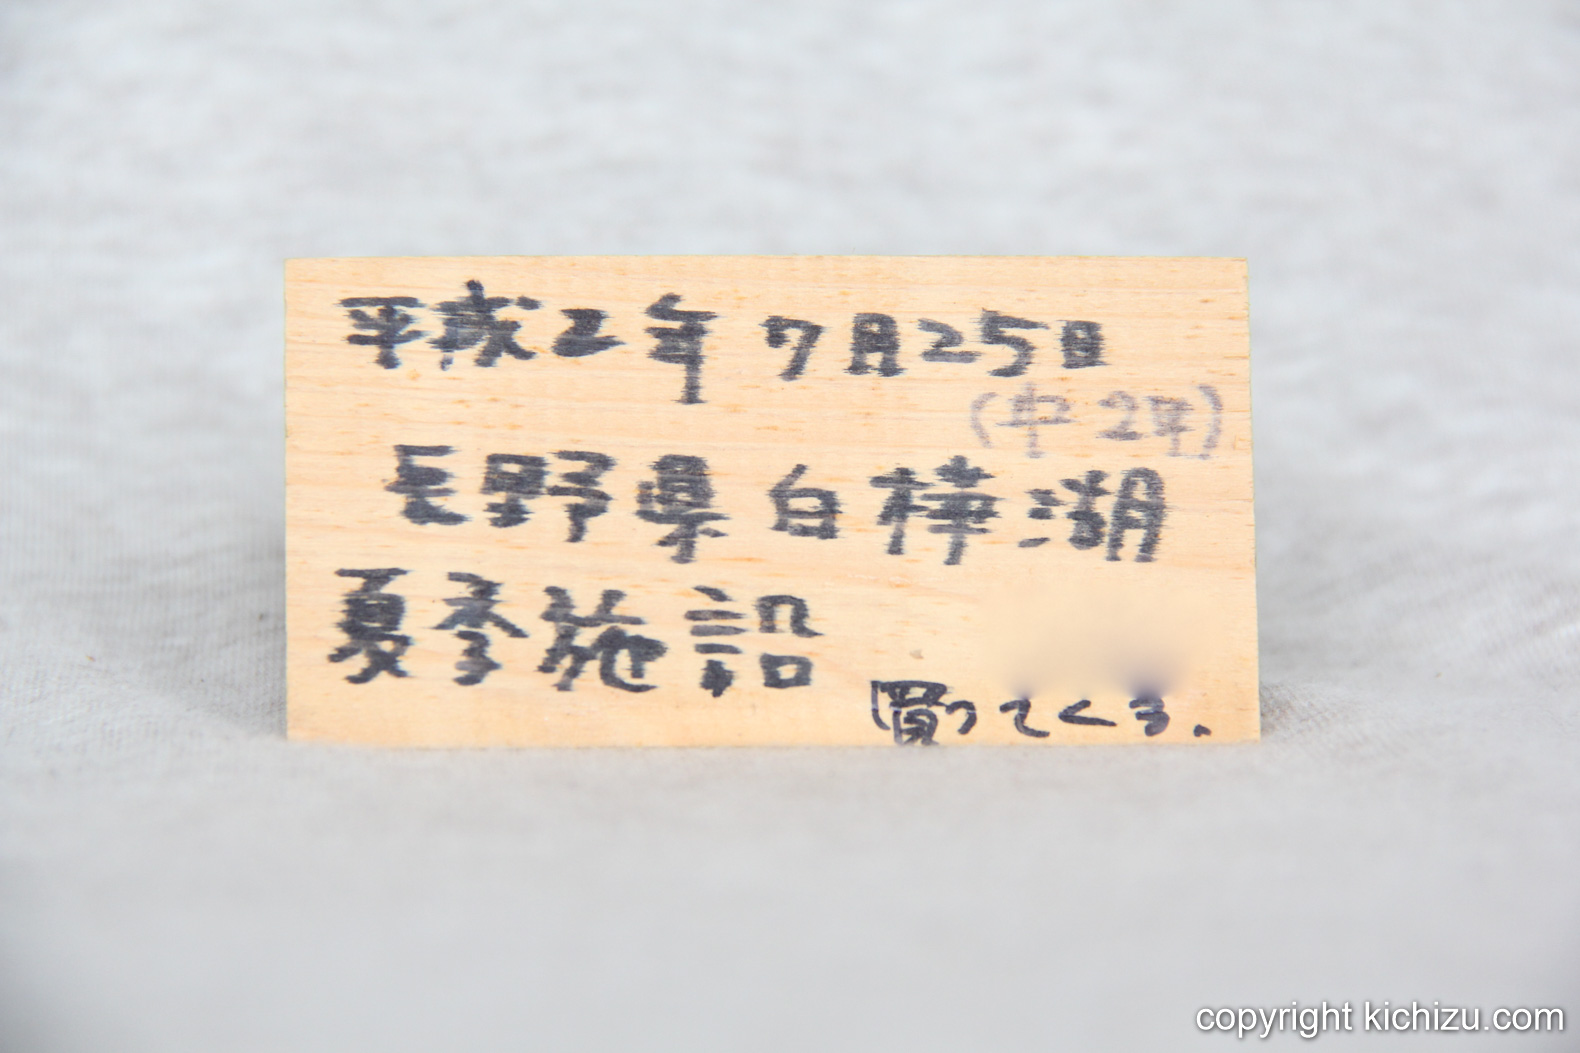 平成2年 7月25日
(中2年)
長野県白樺湖
夏季施設
買ってくる.
copyright kichizu.com